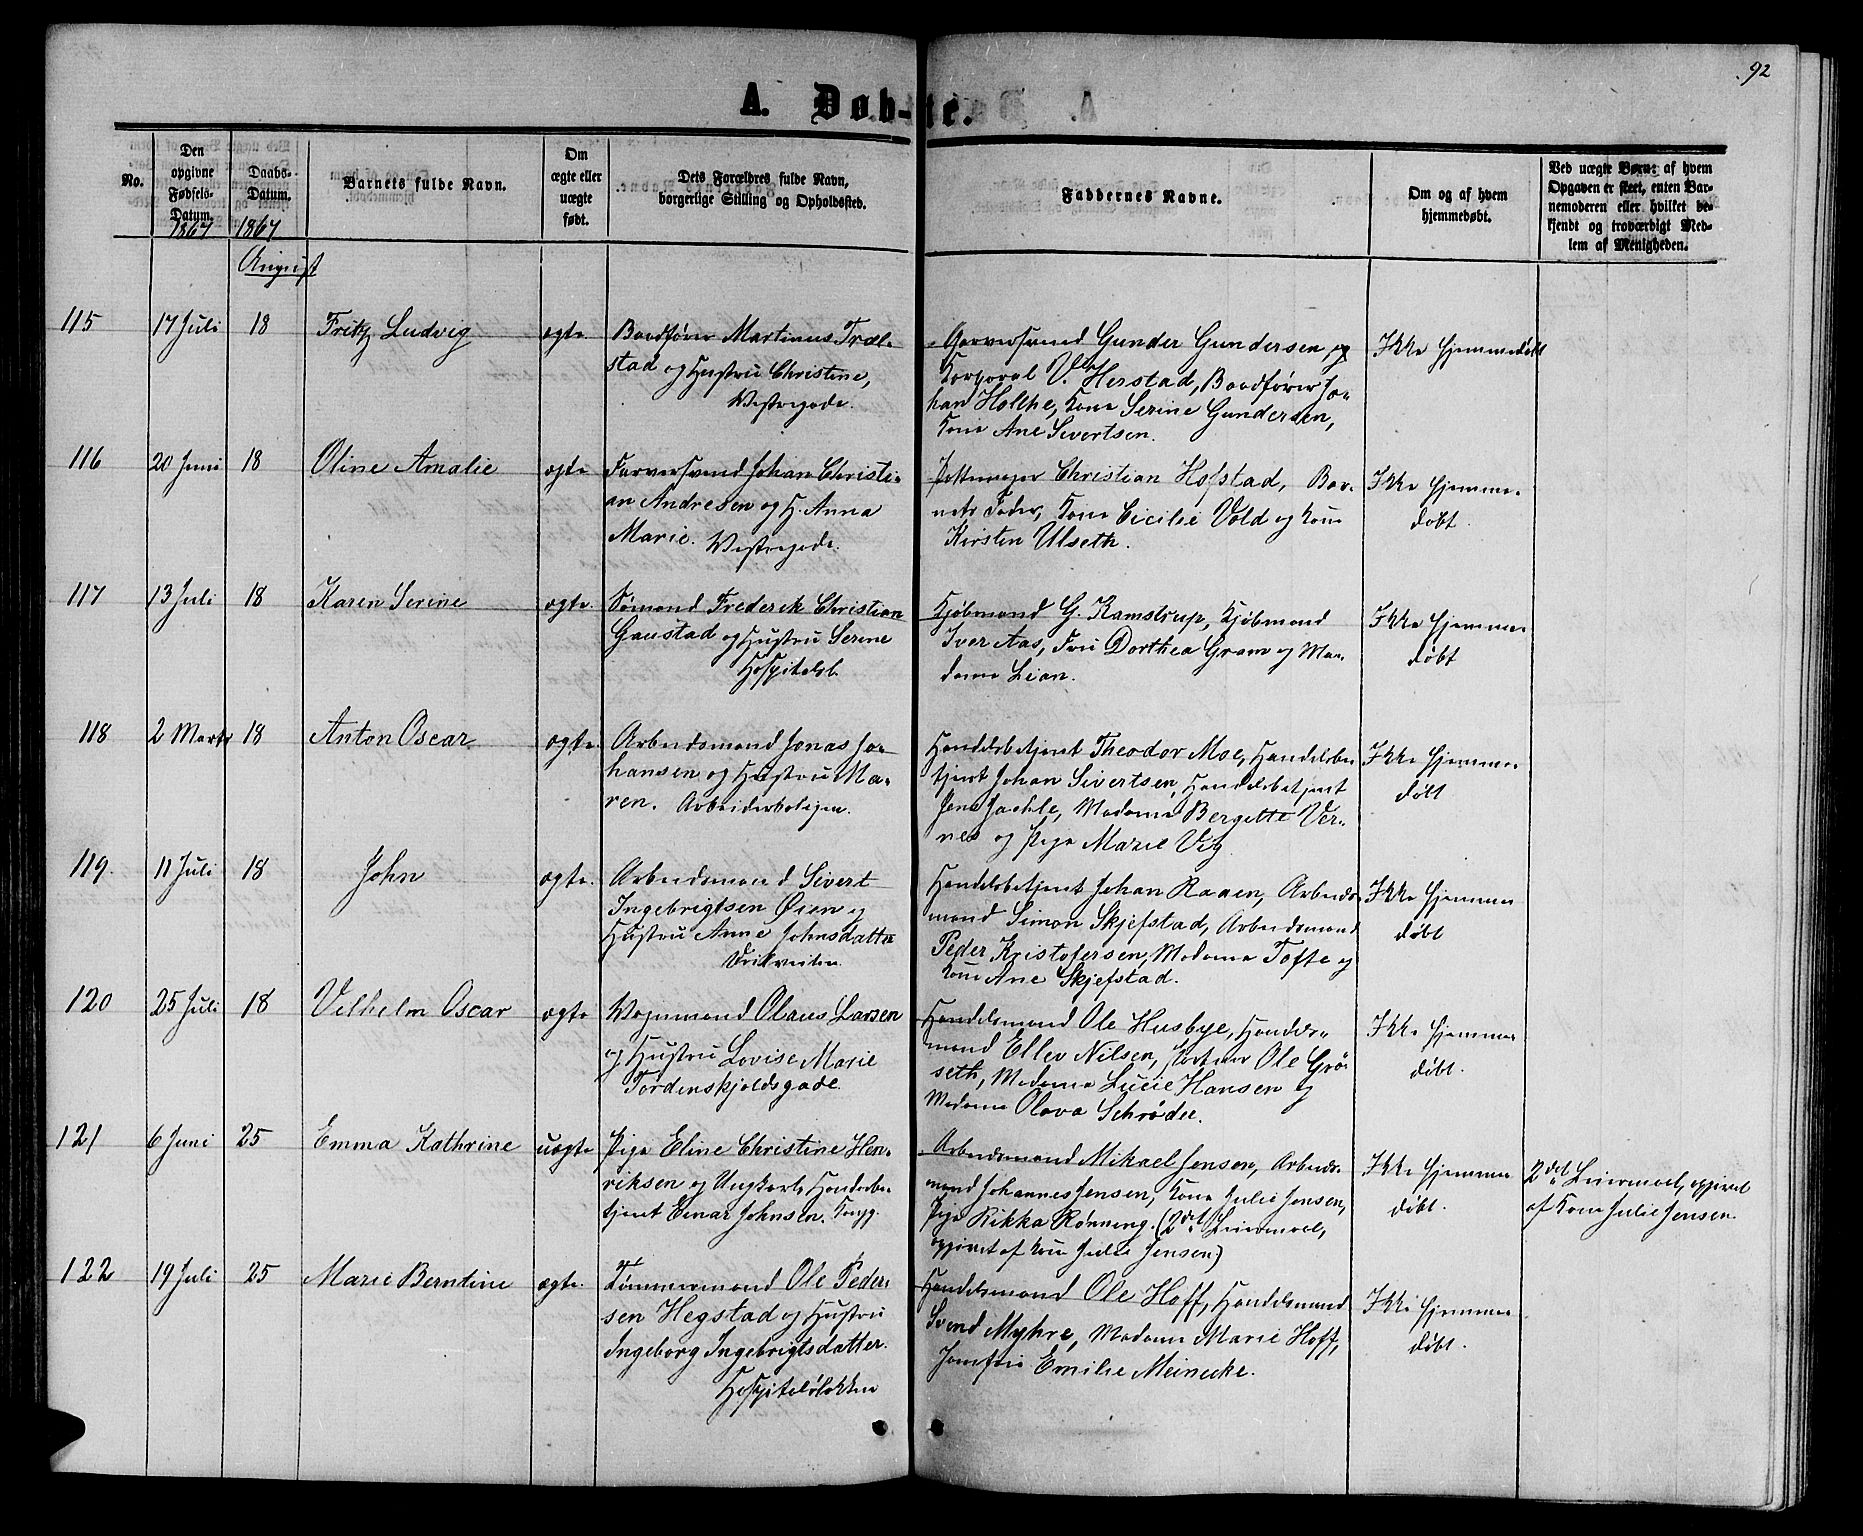 92
A. Døb-te.
No.
Den opgivne Fødsels-Datum.
Daabs-Datum.
Barnets fulde Navn.
Om ægte eller uægte født.
Dets Forældres fulde Navn, borgerlige Stilling og Opholdssted.
Faddernes Navne.
Om og af hvem hjemmedøbt.
Ved uægte Børn: af hvem Opgaven er skeet, enten Barnemoderen eller hvilket bekjendt og troværdigt Medlem af Menigheden.
1867 1867
August
115 17 Juli 18 Fritz Ludvig ægte Baadfører Martinus Træl-
stad og Hustru Christine,
Vestregade.
Garversvend Gunder Gundersen og
Korporal V. Herstad, Baadfører Jo-
han Holthe, Kone Serine Gundersen,
Kone Ane Sivertsen.
Ikke hjemmedøbt
116 20 Juni 18 Oline Amalie ægte Farversvend Johan Christi-
an Andresen og H. Anna
Marie. Vestregade.
Pottemager Christian Hofstad, Bar-
nets Fader, Kone Cicilie Vold og Kone
Kirsten Ulseth.
Ikke hjemme-
døbt.
117 13 Juli 18 Karen Serine ægte Sømand Frederik Christian
Gaustad og Hustru Serine
Hospitalsl.
Kjøbmand G. Kamstrup, Kjøbmand
Iver Aas, Fru Dorthea Gram og Ma-
dame Lian.
Ikke hjemme-
døbt
118 2 Marts 18 Anton Oscar ægte Arbeidsmand Jonas Jo-
hansen og Hustru Ma-
ren. Arbeiderboligen.
Handelsbetjent Theodor Moe, Handelsbe
tjent Johan Sivertsen, Handelsbetjent
Jens Jachle, Madame Bergitte Ver-
nes og Pige Marie Vig
Ikke hjemme-
døbt
119. 11 Juli 18 John ægte. Arbeidsmand Sivert
Ingebrigtsen Øien og
Hustru Anne Johnsdatter
Handelsbetjent Johan Raaen, Arbeids-
mand Simon Skjefstad, Arbeidsmand
Peder Kristofersen, Madame Tofte og
Kone Ane Skjefstad.
Ikke hjemme-
døbt
120 25 Juli 18 Vilhelm Oscar ægte Vognmand Olaus Larsen
og Hustru Lovise Marie
Tordenskjoldsgade.
Handelsmand Ole Husbye, Handels-
mand Ellev Nilsen, Ole Grø-
seth, Madame Lucie Hansen og
Madame Olava Schrøder.
Ikke hjemme-
døbt.
121 6 Juni 25 Emma Kathrine uægte Pige Eline Christine Hen-
riksen og Ungkarl, Handelsbe
tjent Einar Johnsen.
Arbeidsmand Mikael Jensen, Arbeids-
mand Johannes Jensen, Kone Julie Jensen,
Pige Rikka Rønning. (2det Leiermaal,
opgivet af Kone Julie Jensen)
Ikke hjemme-
døbt.
2det Leiermaal, opgivet
af Kone Julie Jensen.
122 19 Juli 25 Marie Berndine ægte. Tømmermand Ole Peder-
sen Hegstad og Hustru
Ingeborg Ingebrigtsdatter.
Hospitalsløkken
Handelsmand Ole Hoff, Handelsmand
Svend Myhre, Madame Marie Hoff,
Jomfru Emilie Meinecke.
Ikke hjemme-
døbt.